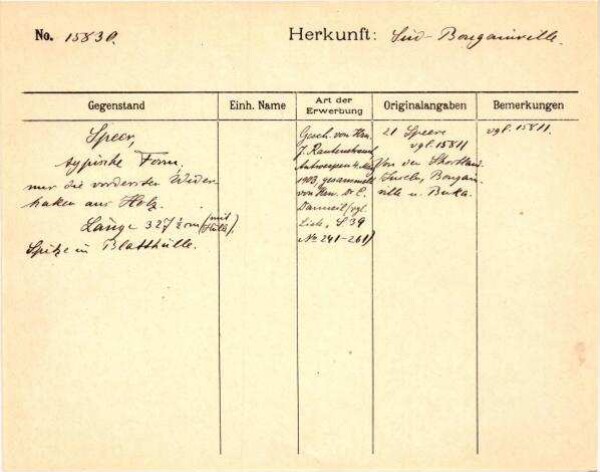 No. 15830. Herkunft: Süd-Bougainville.
Gegenstand Einh. Name Art der Erwerbung Originalangaben Bemerkungen
Speer,
typische Form.
nur die vordersten Wider
haken aus Holz.
Länge 327½ cm (mit Hülle).
Spitze in Blatthülle.
Gesch. von Hrn.
J. Rautenstrauch
Antwerpen
1903, gesammelt
von Hrn. Dr. C.
Danneil (vgl.
Liste, S 39
No 241-261)
21 Speere
vgl. 15811
Von den Shortland
Inseln, Bougain-
ville u. Buka.
vgl. 15811.